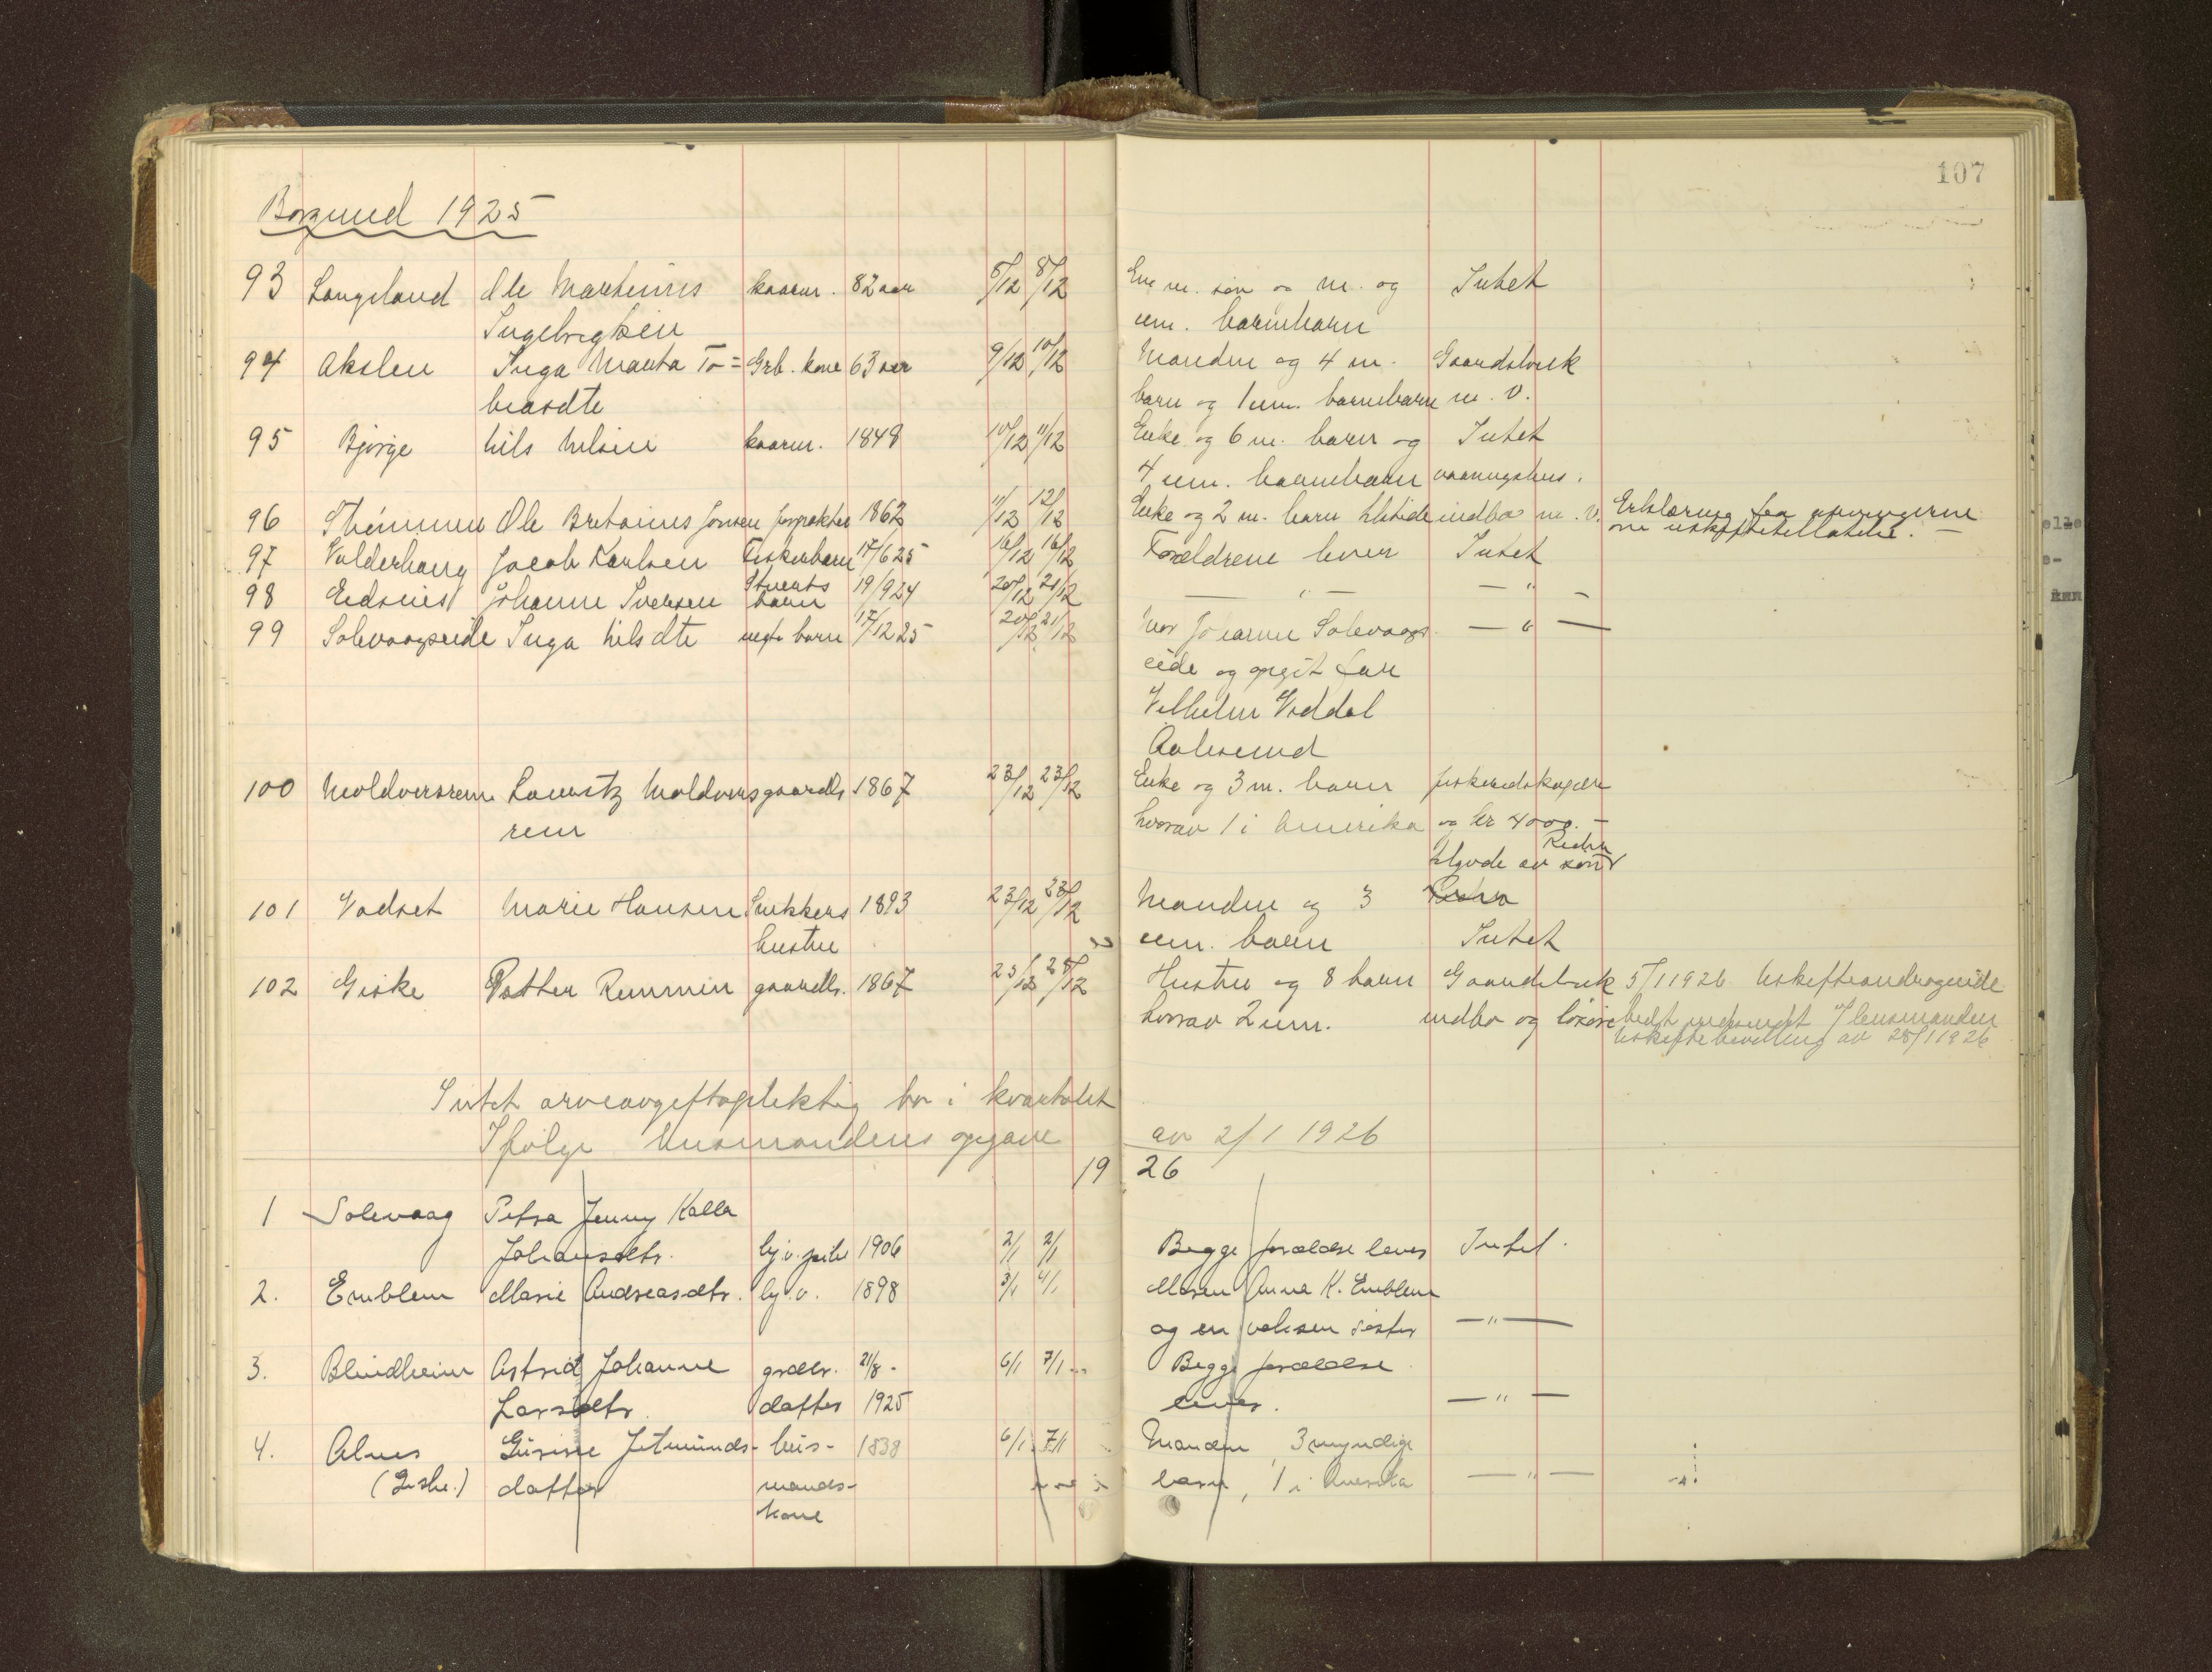 107
Borgund 1925
93 Langeland Ole Martinus kaarm. 82 aar 5/12 8/12 En m. søn og m. og Intet
Ingebrigtsen um. barnebarn
94 Akslen Inga Marta To= Grb. kone 63 aar 9/12 10/12 Manden og 4 m. Gaardsbruk
biasdte barn og 1 um. barnebarn m. v.
95 Bjørge Nils Nilsen kaarm. 1848 10/12 11/12 Enke og 6 m. barn og Intet
4 um. barnebarn vaaningshus.
96 Ole Bretainus Jonsen 1862 11/12 12/12 Enke og 2 m. barn tilstede indbo m. v. Erklæring fra arvingerne
om uskiftetillatelse. —
97 Valderhaug Jacob Karlsen Fiskerbarn 17/6 25 16/12 16/12 Forældrene lever Intet
98 Eidsnes Johanne Iversen Stuerts barn 19/9 24 20/12 21/12 — " — — " —
99 Solevaagseide Inga Nilsdte uegte barn 17/12 25 20/12 21/12 Mor Johanne Solevaags — " —
eide og opgit far
Vilhelm Vaddal
Aalesund
100 Moldversrem Lauritz Moldvers gaardbr. 1867 23/12 23/12 Enke og 3 m. barn fiskeredskaper
rem hvorav 1 i Amerika og kr 4000. —
101 Vadset Marie Hansen Snekkers 1893 23/12 23/12 Manden og 3
hustru um. barn Intet
102 Giske Petter Remmin gaardbr. 1867 25/12 28/12 Hustru og 8 barn Gaardsbruk 5/1 1926 Uskifteandragende
hvorav 2 um. indbo og løsøre bedt indsendt t/ lensmanden
Uskiftebevilling av 28/1 1926
Intet arveavgiftspliktig bo i kvartalet
Ifølge lensmandens opgave av 2/1 1926
1926
1 Solevaag Petra Jenny Kalla
Johansdtr. ug. v. pike 1906 2/1 2/1 Begge forældre lever Intet.
2. Emblem Marie Andreasdtr. ug. v. 1898 3/1 4/1 Moren Anne K. Emblem
og en voksen søster — " —
3. Blindheim Astrid Johanne grdbr. 21/8 - 6/1 7/1 Begge forældre
Larsdtr. datter 1925 lever. — " —
4. Alnes Jetmunds- hus- 1838 6/1 7/1 Manden, 3 myndige
(Giske.) datter mands- barn, 1 i Amerika — " —
kone